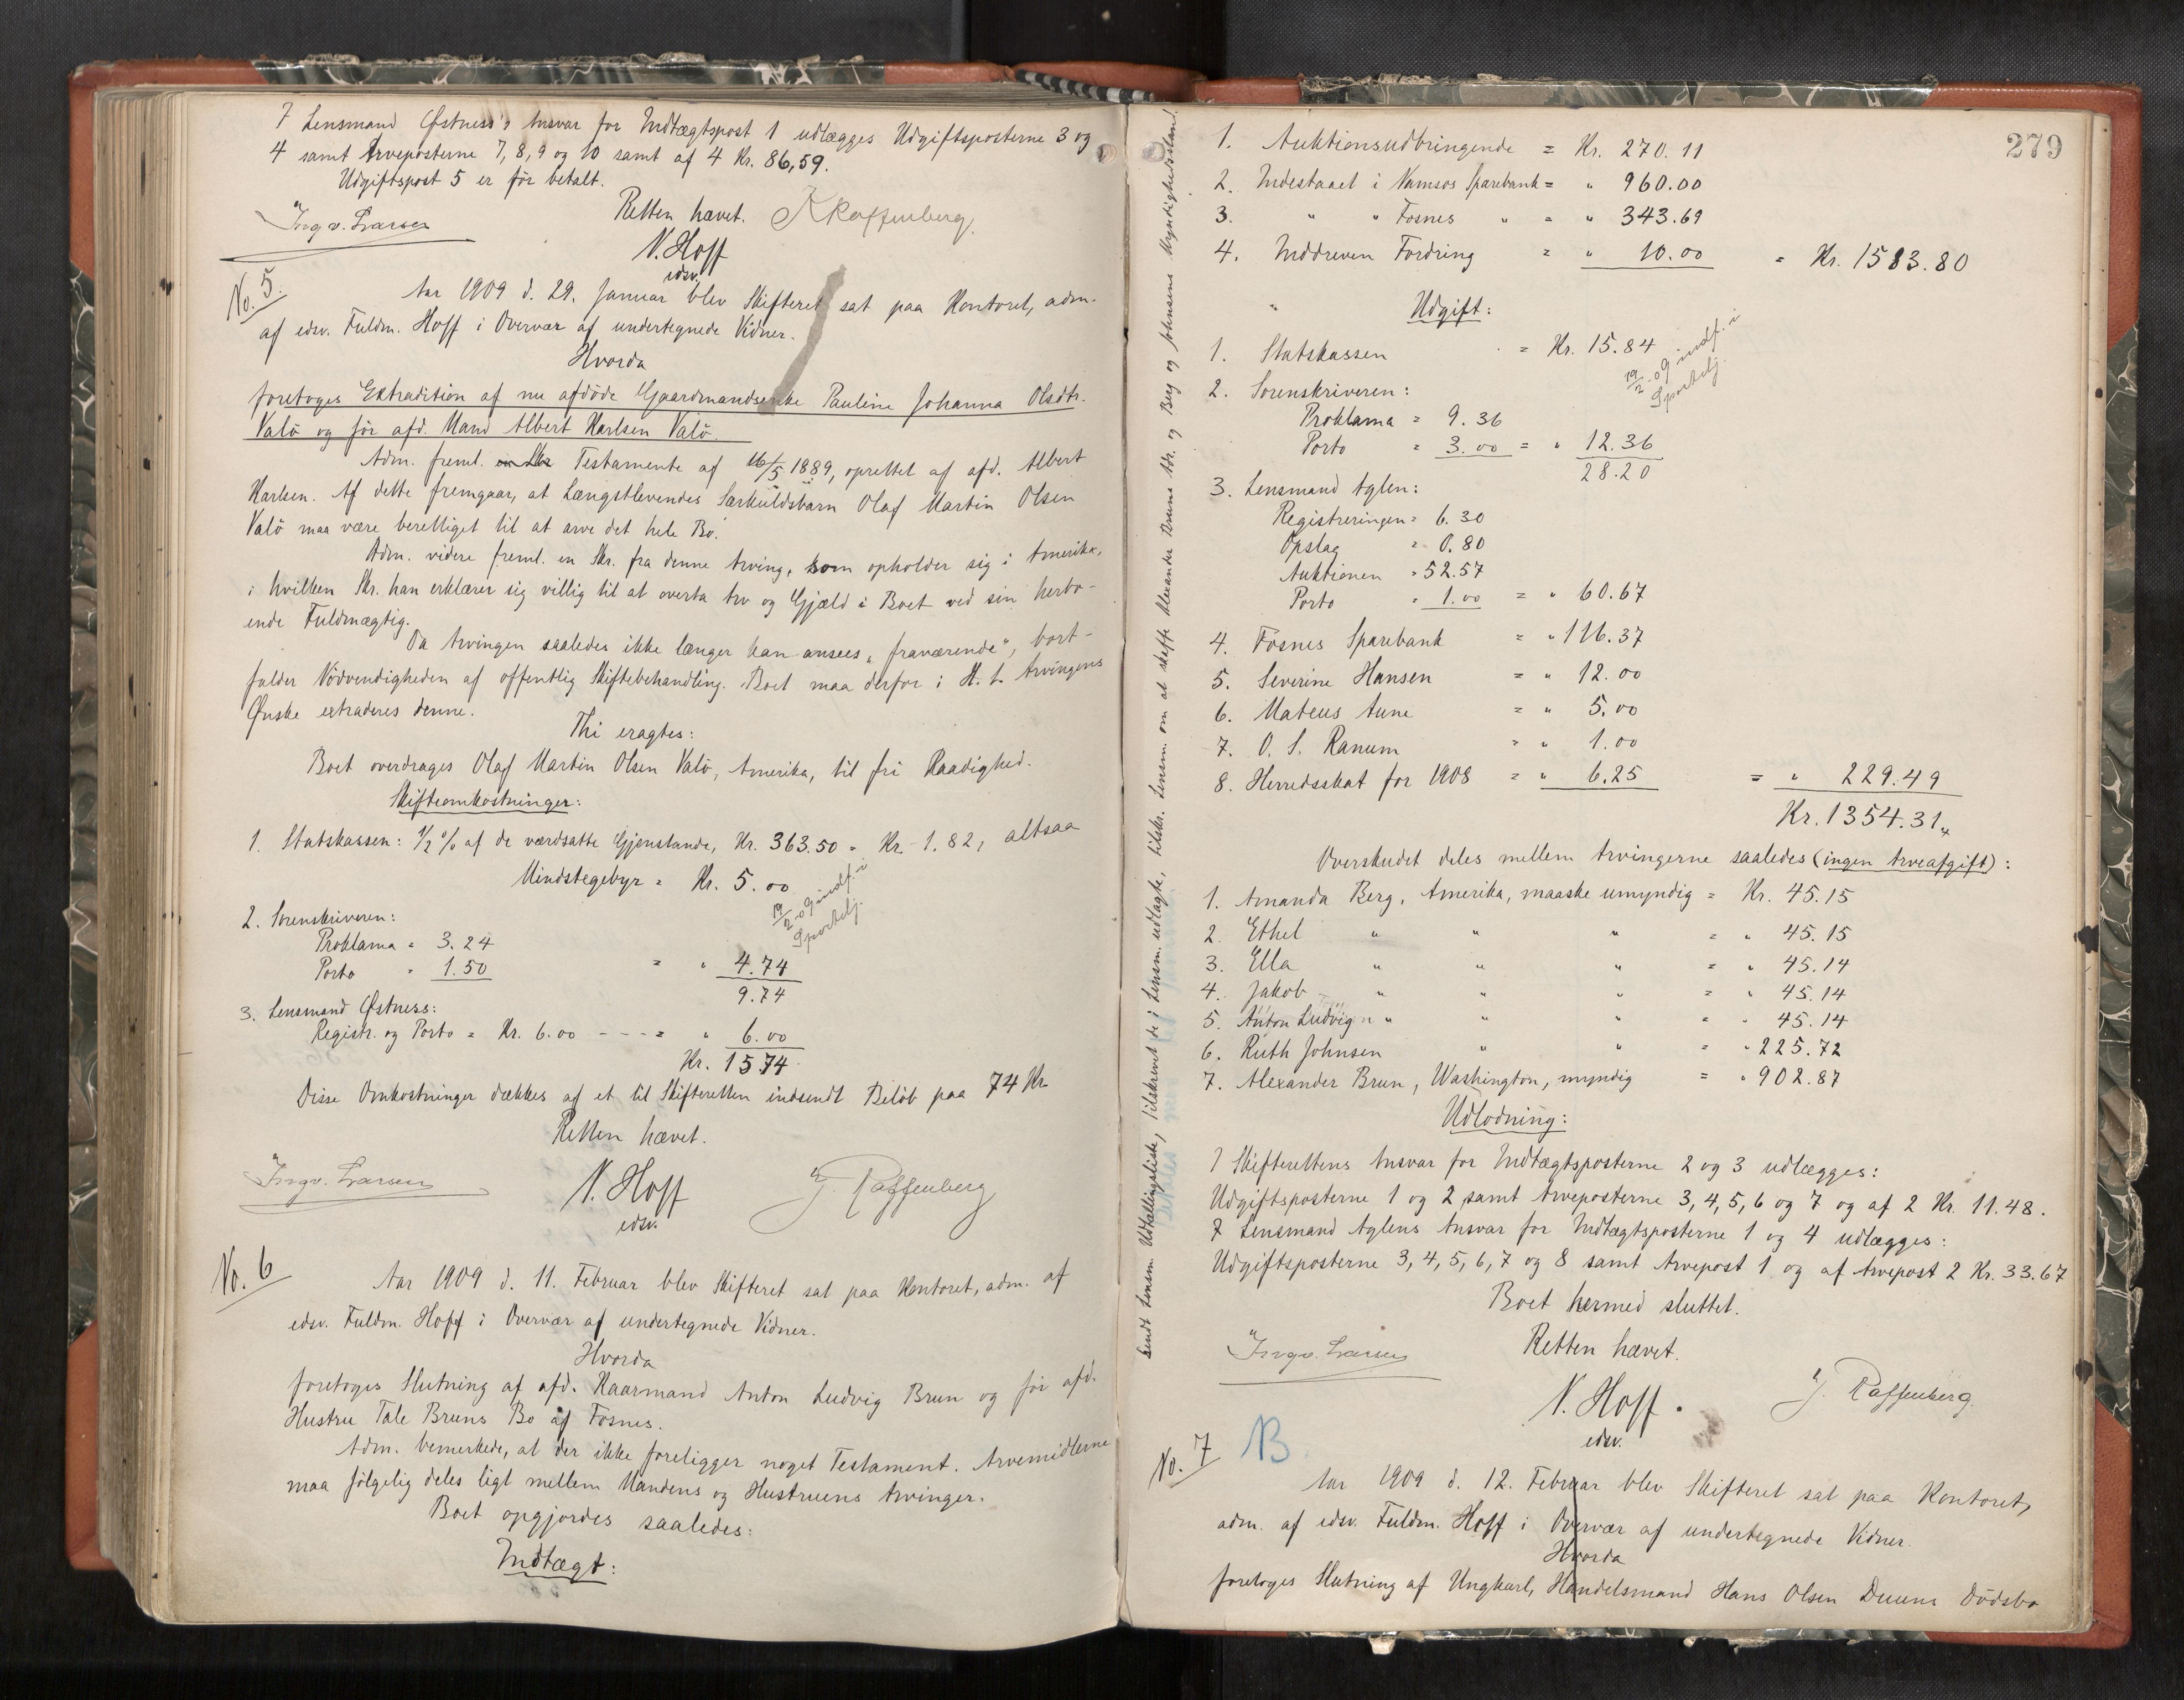 I Lensmand Østness's Ansvar for Indtægtspost 1 udlægges Udgiftsposterne 3 og
4 samt Arveposterne 7, 8, 9 og 10 samt af 4 Kr. 86,59.
Udgiftspost 5 er før betalt.
Retten hævet.
Ingv. Larsen
J Raffenberg.
N. Hoff
edsv.
No. 5.
Aar 1909 d. 29. Januar blev Skifteret sat paa Kontoret, adm.
af edsv. Fuldm. Hoff i Overvær af undertegnede Vidner.
Hvorda
foretoges Extradition af nu afdøde Gaardmandsenke Pauline Johanna Olsdtr.
Valø og før afd. Mand Albert Karlsen Valø.
Adm. freml. en Skr Testamente af 16/5 1889, oprettet af afd. Albert
Karlsen. Af dette fremgaar, at Længstlevendes Særkuldsbarn Olaf Martin Olsen
Valø maa være berettiget til at arve det hele Bo.
Adm. videre freml. en Skr. fra denne Arving, som opholder sig i Amerika,
i hvilken Skr. han erklærer sig villig til at overta Arv og Gjæld i Boet ved sin herbo-
ende Fuldmægtig.
Da Arvingen saaledes ikke længer kan ansees "fraværende", bort-
falder Nødvendigheden af offentlig Skiftebehandling. Boet maa derfor i H. t. Arvingens
Ønske extraderes denne.
Thi eragtes:
Boet overdrages Olaf Martin Olsen Valø, Amerika, til fri Raadighed.
Skifteomkostninger:
1. Statskassen: 1/2 % af de værdsatte Gjenstande, Kr. 363.50 = Kr. 1.82, altsaa
Mindstegebyr = Kr. 5.00
19/2-09 indf. i
Sportelj.
2. Sorenskriveren:
Proklama = 3.24
Porto = 1.50 = " 4.74
9.74
3. Lensmand Østness:
Registr. og Porto = Kr. 6.00 - - - = " 6.00
Kr. 15.74
Disse Omkostninger dækkes af et til Skifteretten indsendt Beløb paa 74 Kr.
Retten hævet.
Ingv. Larsen
N. Hoff
edsv.
J. Raffenberg
No. 6
Aar 1909 d. 11. Februar blev Skifteret sat paa Kontoret, adm. af
edsv. Fuldm. Hoff i Overvær af undertegnede Vidner.
Hvorda
foretoges Slutning af afd. Kaarmand Anton Ludvig Brun og før afd.
Hustru Tale Bruns Bo af Fosnes.
Adm. bemerkede, at der ikke foreligger noget Testament. Arvemidlerne
maa følgelig deles ligt mellem Mandens og Hustruens Arvinger.
Boet opgjordes saaledes:
Indtægt:
279
1. Auktionsudbringende = Kr. 270.11
2. Indestaaet i Namsos Sparebank = " 960.00
3. " " Fosnes " = " 343.69
4. Inddreven Fordring = " 10.00 = Kr. 1583.80
Udgift:
1. Statskassen = Kr. 15.84
19/2-09 indf. i
Sportelj.
2. Sorenskriveren:
Proklama = 9.36
Porto = 3.00 = " 12.36
28.20
3. Lensmand Aglen:
Registreringen = 6.30
Opslag = 0.80
Auktionen = 52.57
Porto = 1.00 = " 60.67
4. Fosnes Sparebank = " 116.37
5. Severine Hansen = " 12.00
6. Mateus Aune = " 5.00
7. O. S. Ranum = " 1.00
8. Herredsskat for 1908 = " 6.25 = " 229.49
Kr. 1354.31
Overskudet deles mellem Arvingerne saaledes (ingen Arveafgift):
1. Amanda Berg, Amerika, maaske umyndig = Kr. 45.15
2. Ethel " " " = " 45.15
3. Ella " " " = " 45.14
4. Jakob " " " = " 45.14
5. Anton Ludvig " " " = " 45.14
6. Ruth Johnsen " " = " 225.72
7. Alexander Brun, Washington, myndig = " 902.87
Udlodning:
I Skifterettens Ansvar for Indtægtsposterne 2 og 3 udlægges:
Udgiftsposterne 1 og 2 samt Arveposterne 3, 4, 5, 6 og 7 og af 2 Kr. 11.48.
I Lensmand Aglens Ansvar for Indtægtsposterne 1 og 4 udlægges:
Udgiftsposterne 3, 4, 5, 6, 7 og 8 samt Arvepost 1 og af Arvepost 2 Kr. 33.67
Boet hermed sluttet.
Retten hævet.
Ingv. Larsen
N. Hoff.
edsv.
J. Raffenberg.
sendt Lensm. Udtallingsliste, tilskrevet de i Lensm. udlagte, tilskr. Lensm. om at skaffe Alexander Bruns Adr. og Berg og Johnsens Myndighedsstand.
No. 7
B
Aar 1909 d. 12. Februar blev Skifteret sat paa Kontoret,
adm. af edsv. Fuldm. Hoff i Overvær af undertegnede Vidner.
Hvorda
foretoges Slutning af Ungkarl, Handelsmand Hans Olsen Duuns Dødsbo